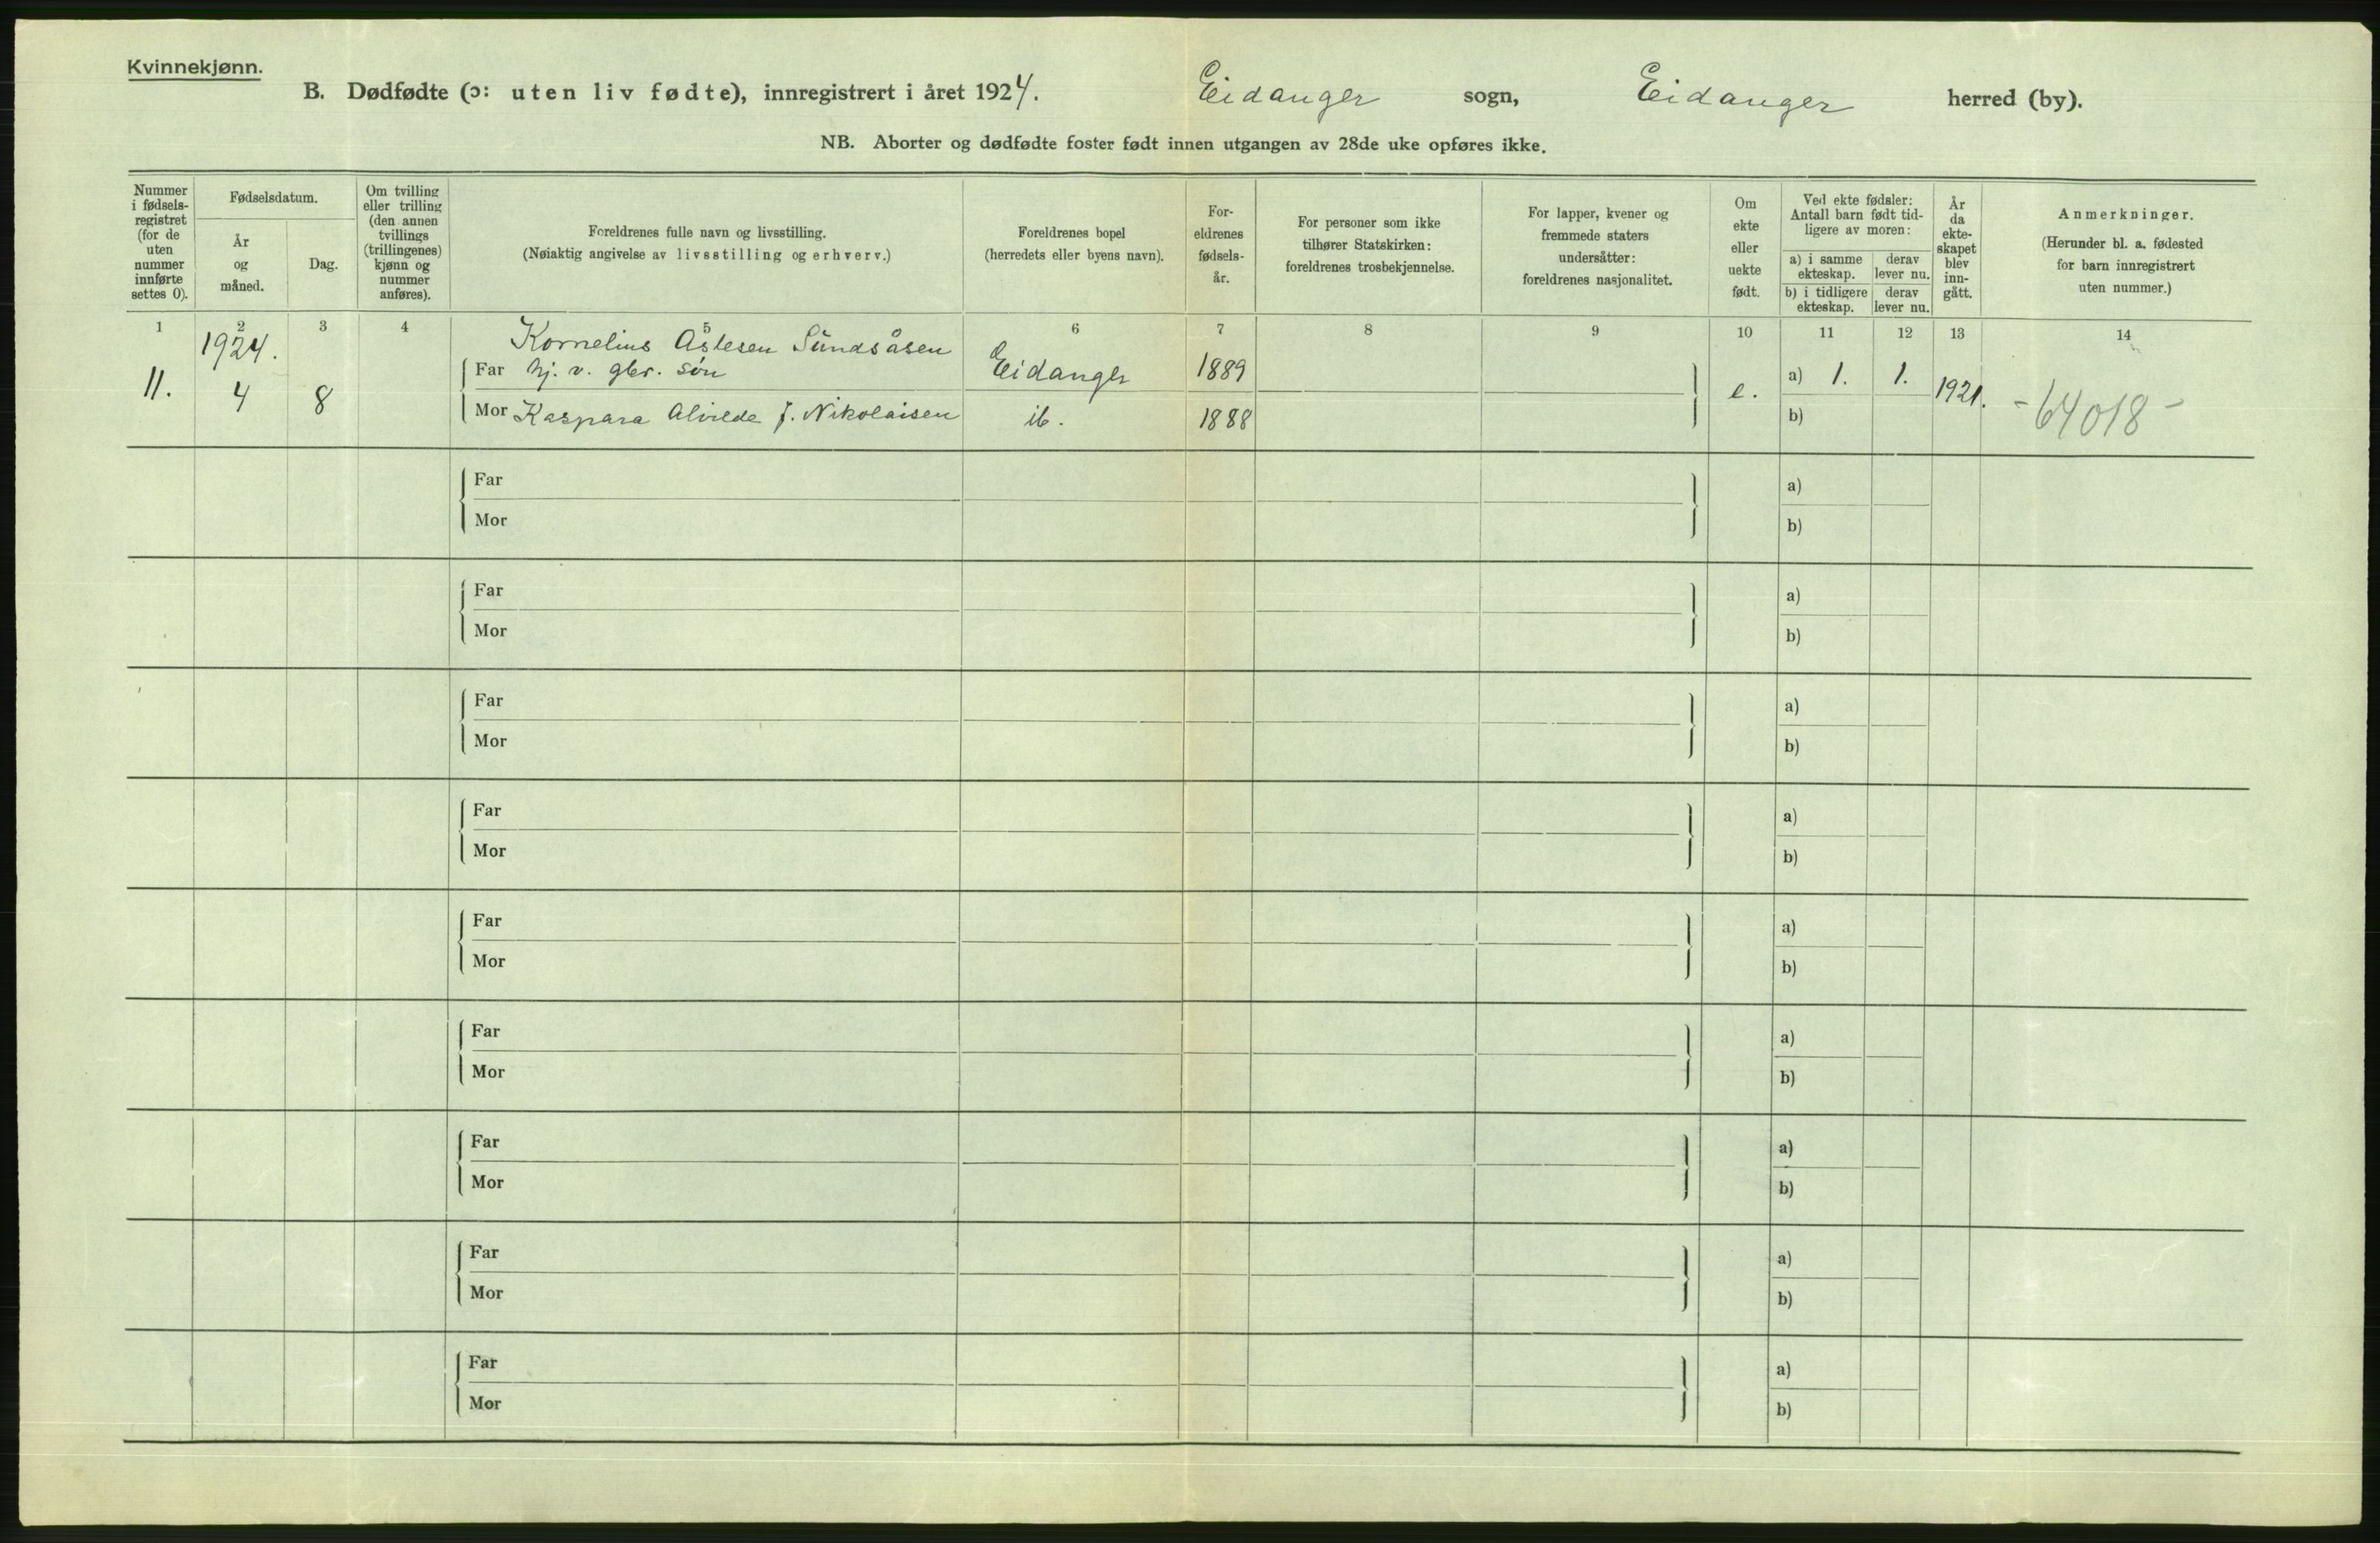 Kvinnekjønn.
B. Dødfødte (ɔ: uten liv fødte), innregistrert i året 1924. Eidanger sogn, Eidanger herred (by).
NB. Aborter og dødfødte foster født innen utgangen av 28de uke opføres ikke.
Nummer
i fødsels-
registret
(for de
uten
nummer
innførte
settes 0).
Fødselsdatum.
År
og
måned.
Dag.
Om tvilling
eller trilling
(den annen
tvillings
(trillingenes)
kjønn og
nummer
anføres).
Foreldrenes fulle navn og livsstilling.
(Nøiaktig angivelse av livsstilling og erhverv.)
Foreldrenes bopel
(herredets eller byens navn).
For-
eldrenes
fødsels-
år.
For personer som ikke
tilhører Statskirken:
foreldrenes trosbekjennelse.
For lapper, kvener og
fremmede staters
undersåtter:
foreldrenes nasjonalitet.
Om
ekte
eller
uekte
født.
Ved ekte fødsler:
Antall barn født tid-
ligere av moren:
a) i samme
ekteskap.
derav
lever nu.
b) i tidligere
ekteskap.
derav
lever nu.
År
da
ekte-
skapet
blev
inn-
gått.
Anmerkninger.
(Herunder bl. a. fødested
for barn innregistrert
uten nummer.)
1 2 3 4 5 6 7 8 9 10 11 12 13 14
1924.
Kornelius Aslesen Sundsåsen
11. 4 8
Far hj. v. gbr. søn Eidanger 1889 e. a) 1. 1. 1921. -64018-
Mor Kaspara Alvilde f. Nikolaisen ib. 1888 b)
Far a)
Mor b)
Far a)
Mor b)
Far a)
Mor b)
Far a)
Mor b)
Far a)
Mor b)
Far a)
Mor b)
Far a)
Mor b)
Far a)
Mor b)
Far a)
Mor b)